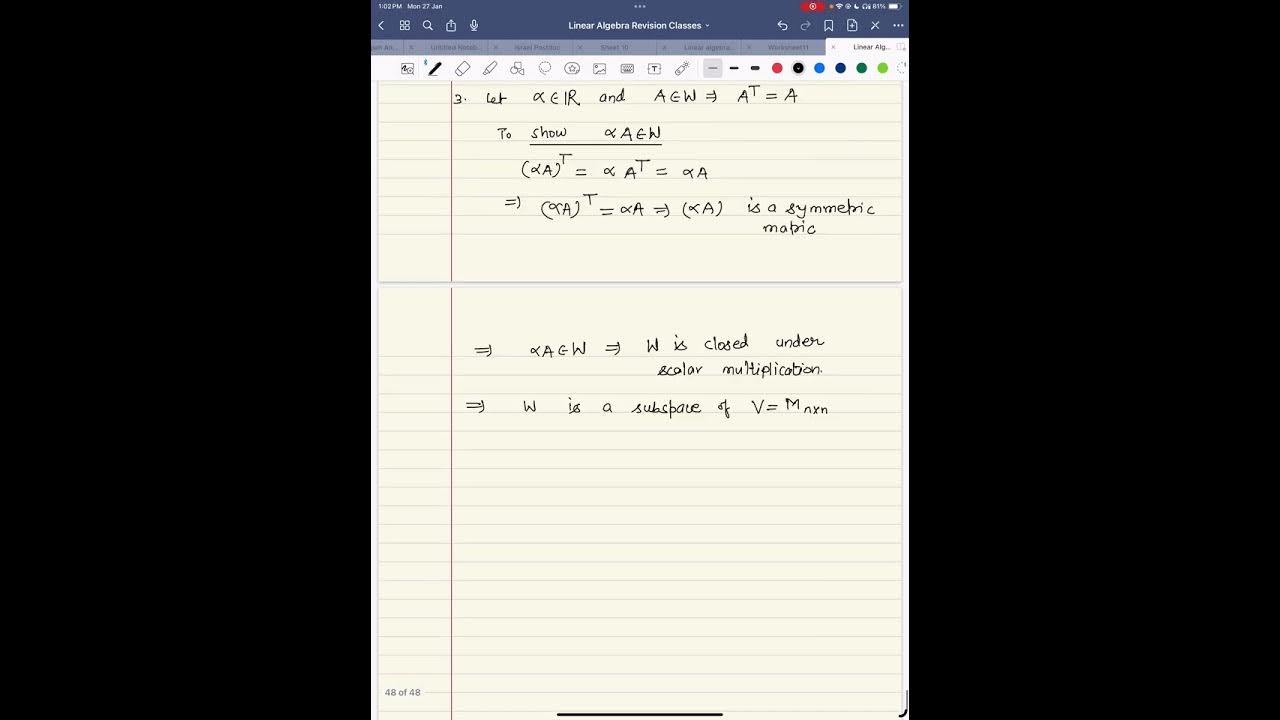 1:02 PM Mon 27 Jan
81%
Linear Algebra Revision Classes
Untitled Noteb...
Israel Postdoc
Sheet 10
Linear algebra...
Worksheet11
Linear Alg...
3. Let α∈ℝ and A∈W ⇒ Aᵀ = A
To show αA∈W
(αA)ᵀ = αAᵀ = αA
⇒ (αA)ᵀ = αA ⇒ (αA) is a symmetric
matric
⇒ αA∈W ⇒ W is closed under
scalar multiplication.
⇒ W is a subspace of V = Mₙₓₙ
48 of 48